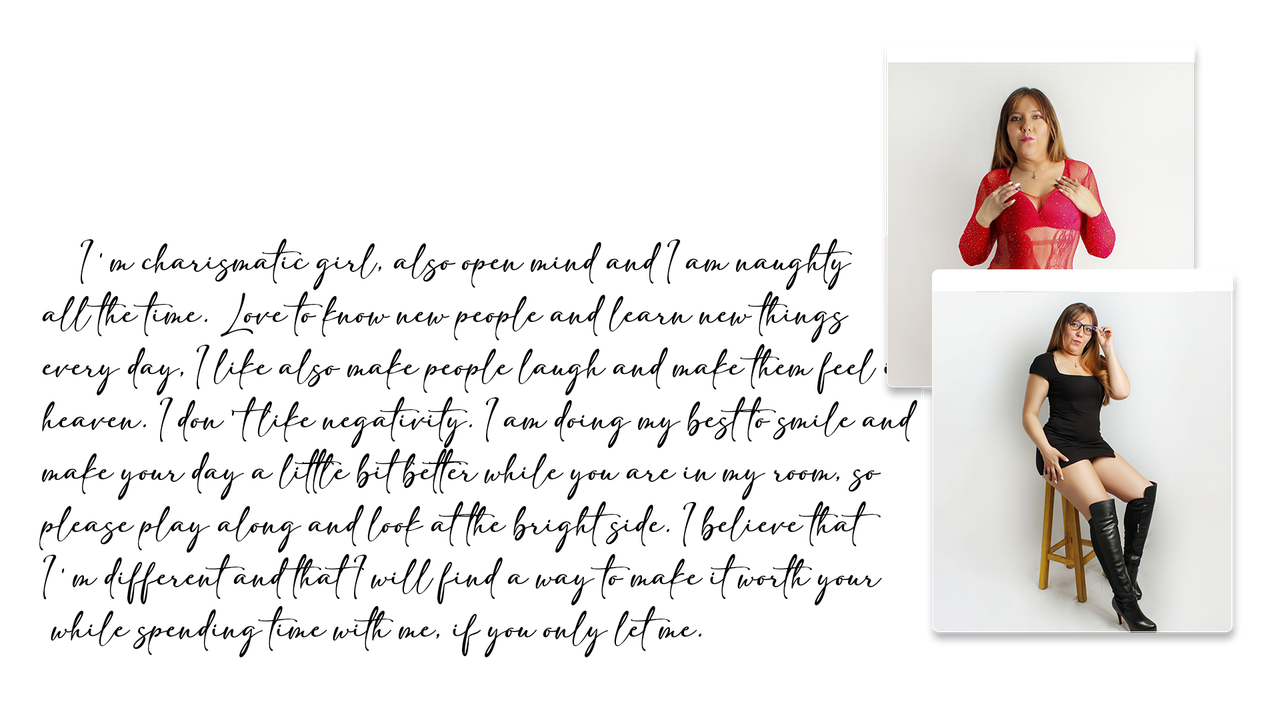 I'm charismatic girl, also open mind and I am naughty
all the time. Love to know new people and learn new things
every day, I like also make people laugh and make them feel
heaven. I don't like negativity. I am doing my best to smile and
make your day a little bit better while you are in my room, so
please play along and look at the bright side. I believe that
I'm different and that I will find a way to make it worth your
while spending time with me, if you only let me.